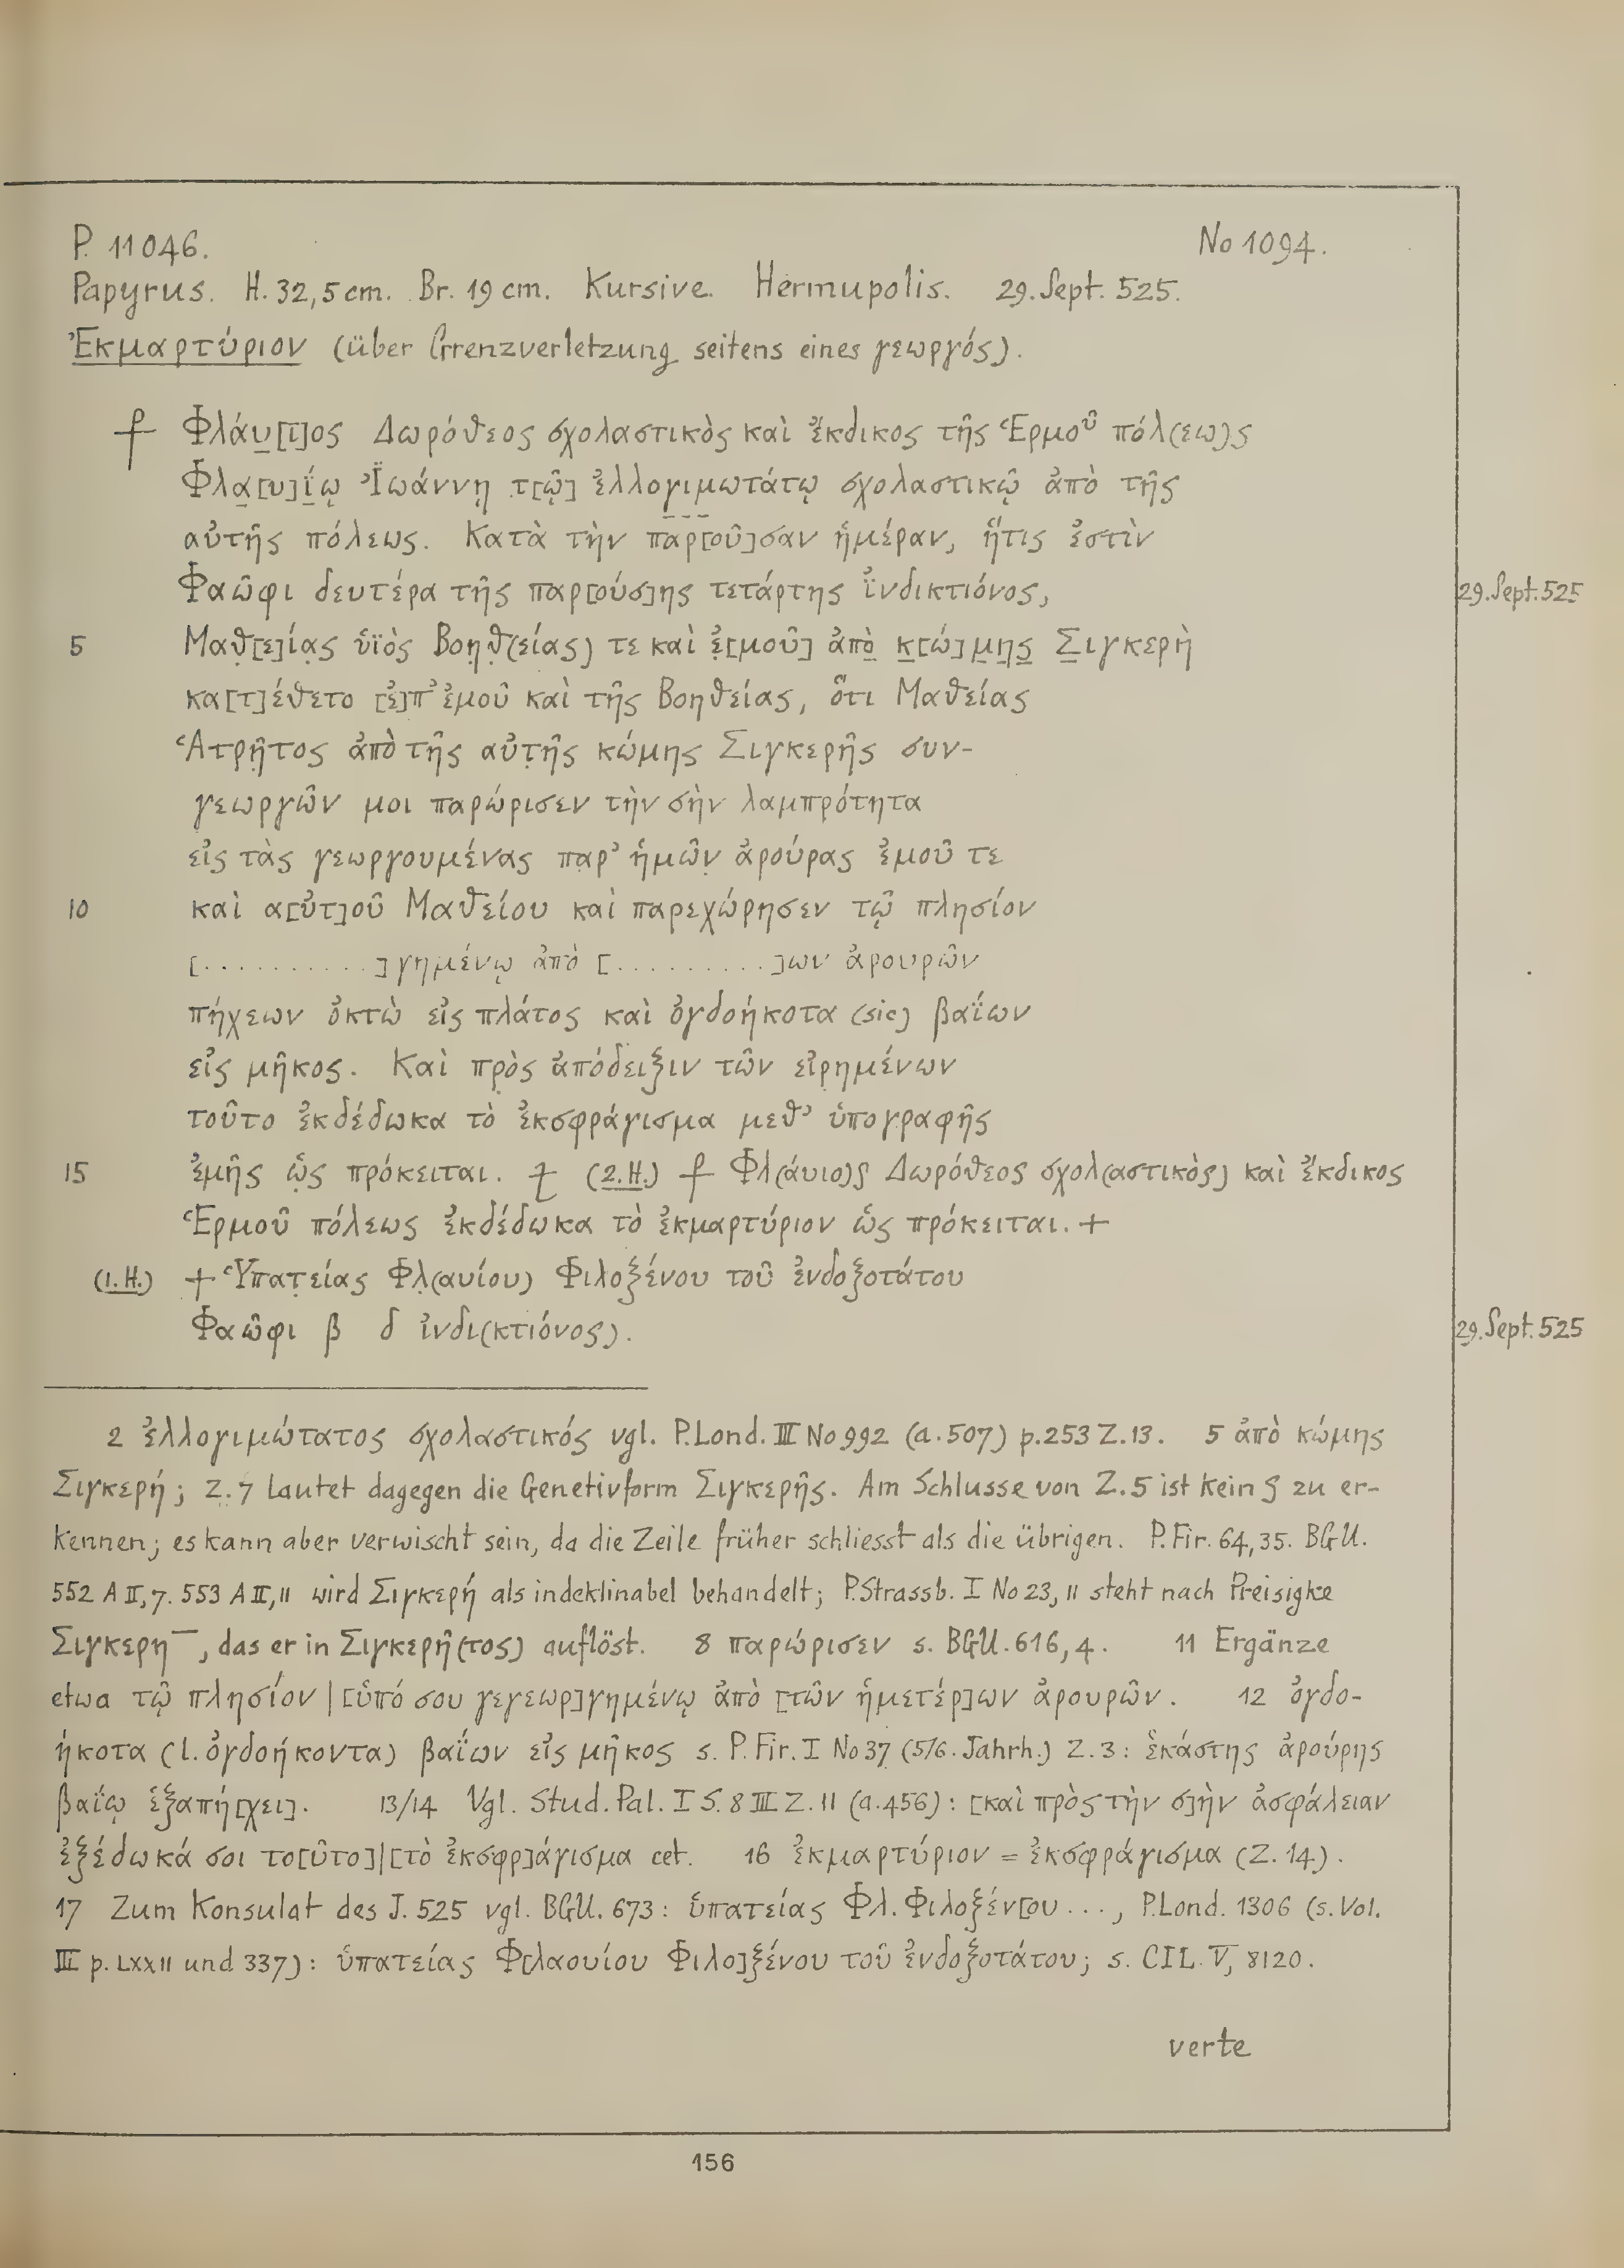 P. 11046. No 1094.
Papyrus. H. 32,5 cm. Br. 19 cm. Kursive. Hermupolis. 29. Sept. 525.
Ἐκμαρτύριον (über Grenzverletzung seitens eines γεωργός).
⳨ Φλάυ̣[ι]ος Δωρόθεος σχολαστικὸς καὶ ἔκδικος τῆς Ἑρμοῦ πόλ(εω)ς
Φλα̣[υ]ΐ̣ῳ Ἰ̈ωάννῃ τ[ῷ] ἐλλογ̣ι̣μ̣ωτάτῳ σχολαστικῷ ἀπὸ τῆς
αὐτῆς πόλεως. Κατὰ τὴν παρ[οῦ]σαν ἡμέραν, ἥτις ἐστὶν
Φαῶφι δευτέρα τῆς παρ[ούσ]ης τετάρτης ἰ̈νδικτιόνος, 29. Sept. 525
5 Μαθ̣[ε]ία̣ς ὑϊὸς Βοη̣θ̣(είας) τε καὶ ἐ̣[μοῦ] ἀπὸ̣ κ̣[ώ]μ̣η̣ς̣ Σ̣ιγκερὴ
κα[τ]έθετο [ἐ]π' ἐμοῦ καὶ τῆς Βοηθείας, ὅτι Μαθείας
Ἁτρῆ̣τος ἀπὸ τῆς αὐτ̣ῆς κώμης Σιγκερῆς συν-
γεωργῶν μοι παρώρισεν τὴν σὴν λαμπρότητα
εἰς τὰς γεωργουμένας πα̣ρ' ἡμῶ̣ν ἀρούρας ἐμοῦ τε
10 καὶ α[ὐτ]οῦ Μαθείου καὶ παρεχώρησεν τῷ πλησίον
[. . . . . . . . . .]γημένῳ ἀπὸ [. . . . . . . . .]ων ἀρουρῶν
πήχεων ὀκτὼ εἰς πλάτος καὶ ὀγδοήκοτα (sic) βαΐων
εἰς μῆκος. Καὶ πρὸ̣ς ἀπόδειξιν τῶν εἰρ̣ημένων
τοῦτο ἐκδέδωκα τὸ ἐκσφράγισμα μεθ' ὑπογραφῆς
15 ἐμῆς ὡ̣ς πρόκειται. ⳨ (2. H.) ⳨ Φλ(άυιο)ς Δωρόθεος σχολ(αστικὸς) καὶ ἔκδικος
Ἑρμοῦ πόλεως ἐκδέδωκα τὸ ἐκμαρτύριον ὡς πρόκειται. +
(1. H.) + Ὑπατ̣είας Φλ̣(αυίου) Φιλοξένου τοῦ ἐνδοξοτάτου
Φαῶφι β δ ἰνδι(κτιόνος). 29. Sept. 525
2 ἐλλογιμώτατος σχολαστικός vgl. P. Lond. III No 992 (a. 507) p. 253 Z. 13. 5 ἀπὸ κώμης
Σιγκερή; Z. 7 lautet dagegen die Genetivform Σιγκερῆς. Am Schlusse von Z. 5 ist kein ς zu er-
kennen; es kann aber verwischt sein, da die Zeile früher schliesst als die übrigen. P. Fir. 64, 35. BGU.
552 A II, 7. 553 A II, 11 wird Σιγκερή als indeklinabel behandelt; P. Strassb. I No 23, 11 steht nach Preisigke
Σιγκερη‾, das er in Σιγκερῆ(τος) auflöst. 8 παρώρισεν s. BGU. 616, 4. 11 Ergänze
etwa τῷ πλησίον | [ὑπό σου γεγεωρ]γημένῳ ἀπὸ [τῶν ἡμετέρ]ων ἀρουρῶν. 12 ὀγδο-
ήκοτα (l. ὀγδοήκοντα) βαΐων εἰς μῆκος s. P. Fir. I No 37 (5/6. Jahrh.) Z. 3: ἑκάστης ἀρούρης
βαΐῳ ἑξαπή[χει]. 13/14 Vgl. Stud. Pal. I S. 8 III Z. 11 (a. 456): [καὶ πρὸς τὴν σ]ὴν ἀσφάλειαν
ἐξέδωκά σοι το[ῦτο]|[τὸ ἐκσφρ]άγισμα cet. 16 ἐκμαρτύριον = ἐκσφράγισμα (Z. 14).
17 Zum Konsulat des J. 525 vgl. BGU. 673: ὑπατείας Φλ. Φιλοξέν[ου . . . , P. Lond. 1306 (s. Vol.
III p. LXXII und 337): ὑπατείας Φ[λαουίου Φιλο]ξένου τοῦ ἐνδοξοτάτου; s. CIL. V, 8120.
verte
156